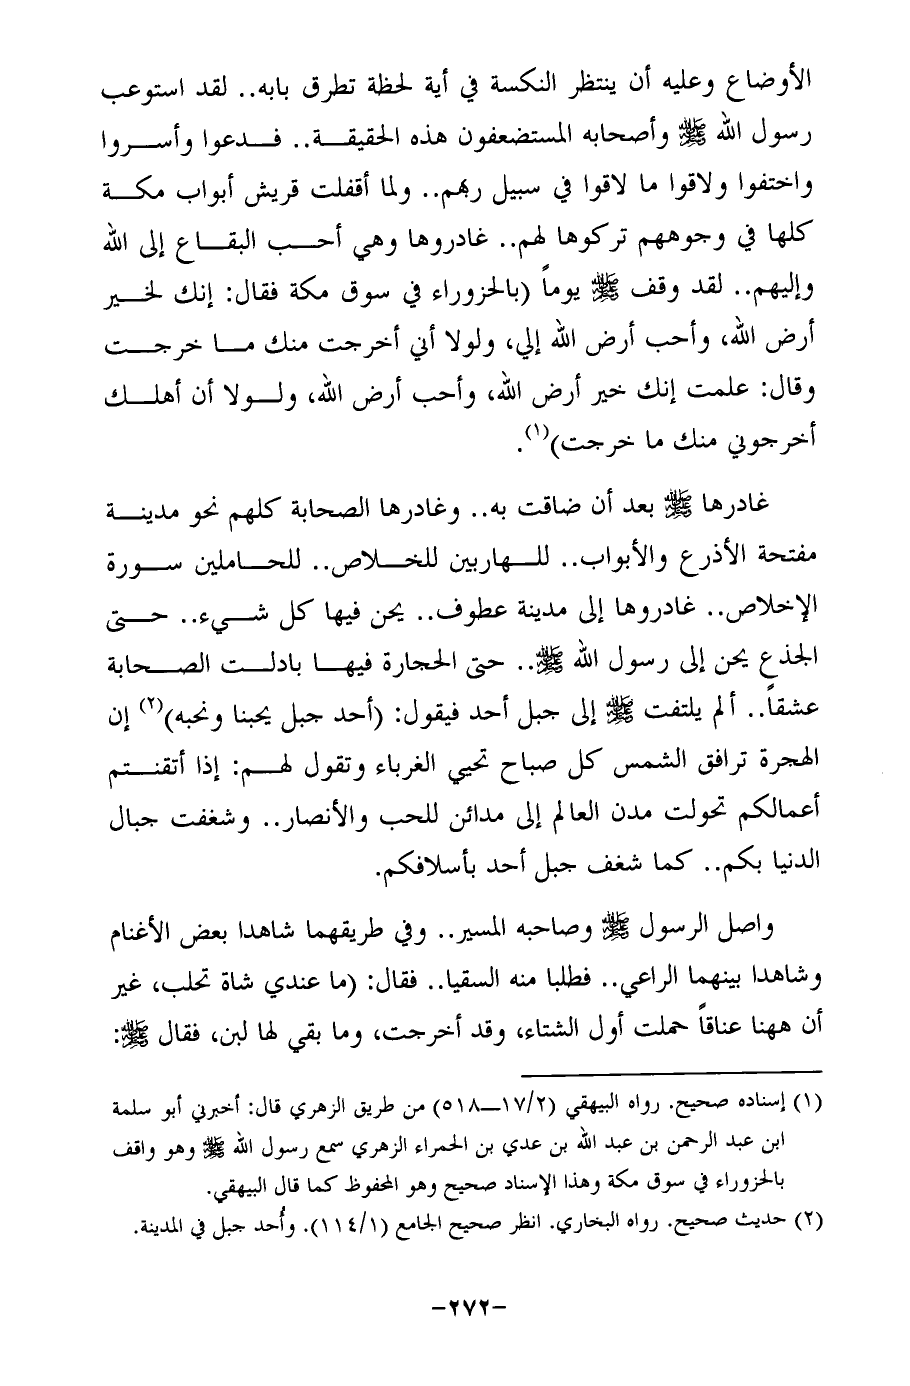 الأوضاع وعليه أن ينتظر النكسة في أية لحظة تطرق بابه.. لقد استوعب
رسول الله ﷺ وأصحابه المستضعفون هذه الحقيقــة.. فــدعوا وأســروا
واختفوا ولاقوا ما لاقوا في سبيل ربهم.. ولما أقفلت قريش أبواب مكــة
كلها في وجوههم تركوها لهم.. غادروها وهي أحــب البقــاع إلى الله
وإليهم.. لقد وقف ﷺ يوماً (بالحزوراء في سوق مكة فقال: إنك لخــير
أرض الله، وأحب أرض الله إلي، ولولا أني أخرجت منك مــا خرجــت
وقال: علمت إنك خير أرض الله، وأحب أرض الله، ولــولا أن أهلــك
أخرجوني منك ما خرجت)(١).
غادرها ﷺ بعد أن ضاقت به.. وغادرها الصحابة كلهم نحو مدينــة
مفتحة الأذرع والأبواب.. للــهاربين للخــلاص.. للحــاملين ســورة
الإخلاص.. غادروها إلى مدينة عطوف.. يحن فيها كل شــيء.. حــتى
الجذع يحن إلى رسول الله ﷺ.. حتى الحجارة فيهــا بادلــت الصــحابة
عشقاً.. ألم يلتفت ﷺ إلى جبل أحد فيقول: (أحد جبل يحبنا ونحبه)(٢) إن
الهجرة ترافق الشمس كل صباح تحيي الغرباء وتقول لهــم: إذا أتقنــتم
أعمالكم تحولت مدن العالم إلى مدائن للحب والأنصار.. وشغفت جبال
الدنيا بكم.. كما شغف جبل أحد بأسلافكم.
واصل الرسول ﷺ وصاحبه المسير.. وفي طريقهما شاهدا بعض الأغنام
وشاهدا بينهما الراعي.. فطلبا منه السقيا.. فقال: (ما عندي شاة تحلب، غير
أن ههنا عناقاً حملت أول الشتاء، وقد أخرجت، وما بقي لها لبن، فقال ﷺ:
(١) إسناده صحيح. رواه البيهقي (١٧/٢ــ٥١٨) من طريق الزهري قال: أخبرني أبو سلمة
ابن عبد الرحمن بن عبد الله بن عدي بن الحمراء الزهري سمع رسول الله ﷺ وهو واقف
بالحزوراء في سوق مكة وهذا الإسناد صحيح وهو المحفوظ كما قال البيهقي.
(٢) حديث صحيح. رواه البخاري. انظر صحيح الجامع (١١٤/١). وأُحد جبل في المدينة.
-٢٧٢-